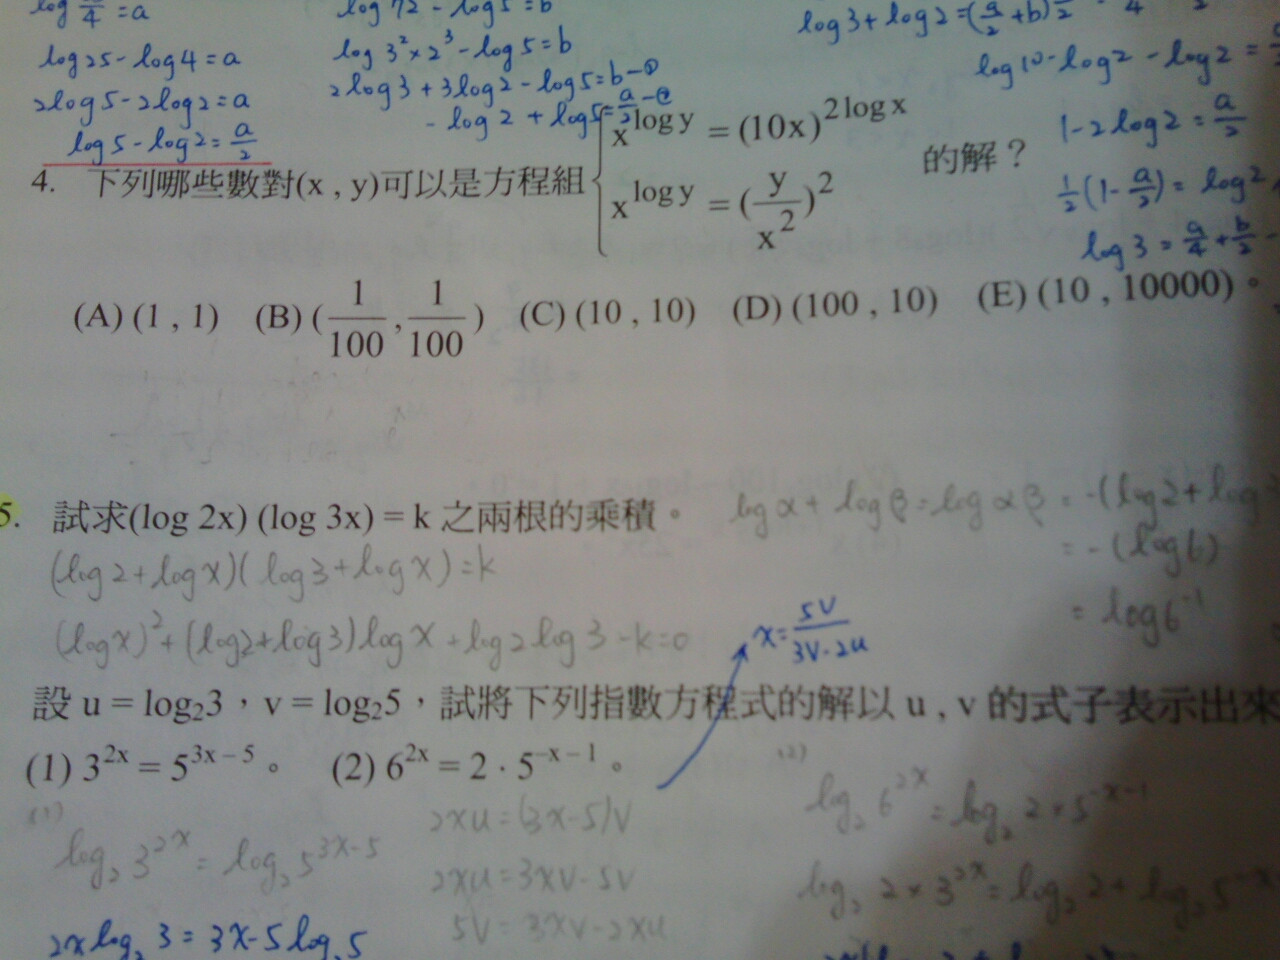 log /4 = a
log25 - log4 = a
2log5 - 2log2 = a
log5 - log2 = a/2
log72 - log5 = b
log 3²×2³ - log5 = b
2log3 + 3log2 - log5 = b - ①
- log2 + log5 = a/2 - ②
log3 + log2 = (a/2 + b)½
log10 - log2 - log2 =
1 - 2log2 = a/2
½(1 - a/2) = log2
log3 = a/4 + b/2 -
4. 下列哪些數對(x , y)可以是方程組{ x^(log y) = (10x)^(2 log x) 的解？
x^(log y) = (y/x²)²
(A) (1 , 1) (B) (1/100 , 1/100) (C) (10 , 10) (D) (100 , 10) (E) (10 , 10000)。
5. 試求(log 2x) (log 3x) = k 之兩根的乘積。
(log2 + logx)(log3 + logx) = k
(logx)² + (log2+log3)logx + log2log3 - k = 0
logα + logβ = logαβ = -(log2 + log
= -(log6)
= log6⁻¹
x = 5V/(3V-2u)
設 u = log₂3，v = log₂5，試將下列指數方程式的解以 u , v 的式子表示出來
(1) 3^(2x) = 5^(3x – 5)。 (2) 6^(2x) = 2 · 5^(–x – 1)。
(1)
log₂ 3^(2x) = log₂ 5^(3x-5)
2x log₂ 3 = 3x-5 log₂ 5
2xu = (3x-5)V
2xu = 3xV - 5V
5V = 3xV - 2xu
(2)
log₂ 6^(2x) = log₂ 2×5^(-x-1)
log₂ 2×3^(2x) = log₂ 2 + log₂ 5^(-x